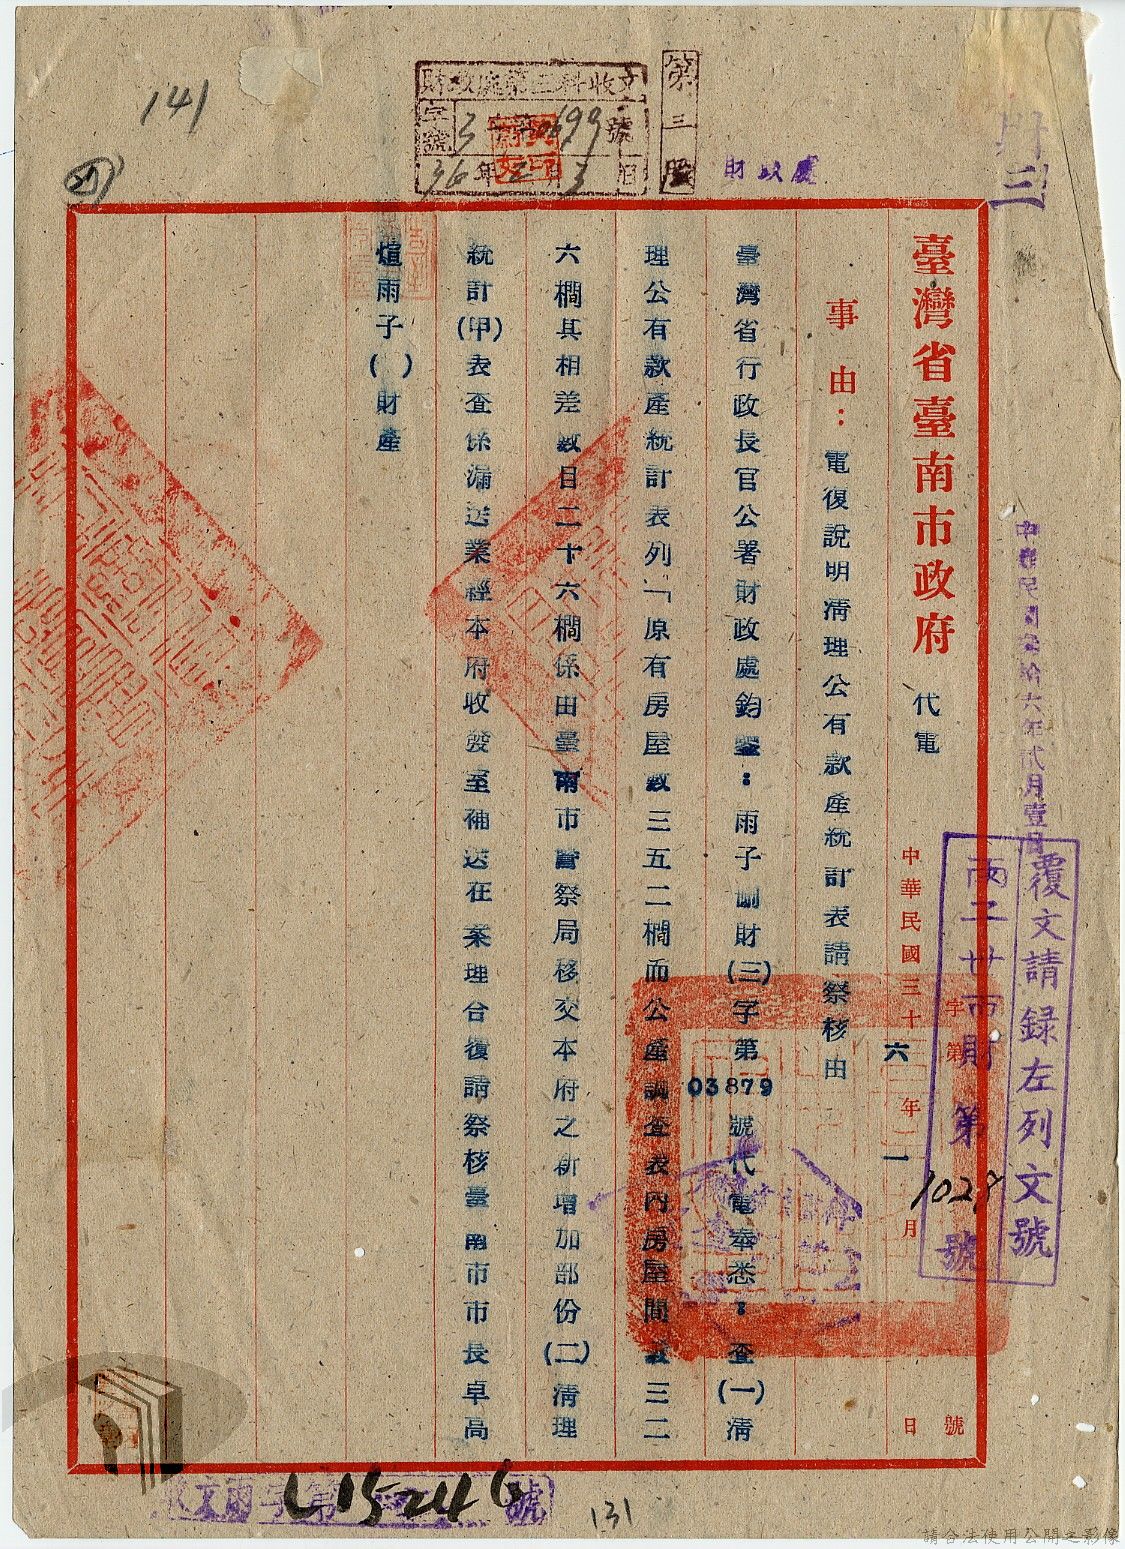 141
財政處第三科收文
字號 3 字第0699號
36年2月3日
第三股
財政處
財
三
中華民國叁拾六年貳月壹日
覆文請録左列文號
丙子世市財第1029號
臺灣省臺南市政府 代電 字第 號
中華民國三十六年二月 日
事由：電復說明清理公有款產統計表請察核由
臺灣省行政長官公署財政處鈞鑒：雨子 財(三)字第03879號代電奉悉：查(一)清
理公有款產統計表列「原有房屋數三五二櫊而公產調查表內房屋間數三二
六櫊其相差數目二十六櫊係由臺南市警察局移交本府之新增加部份(二)清理
統計(甲)表查係漏送業經本府收發室補送在案理合復請察核臺南市市長卓高
煊雨子( )財產
收文 字第L15246號
131
請合法使用公開之影像